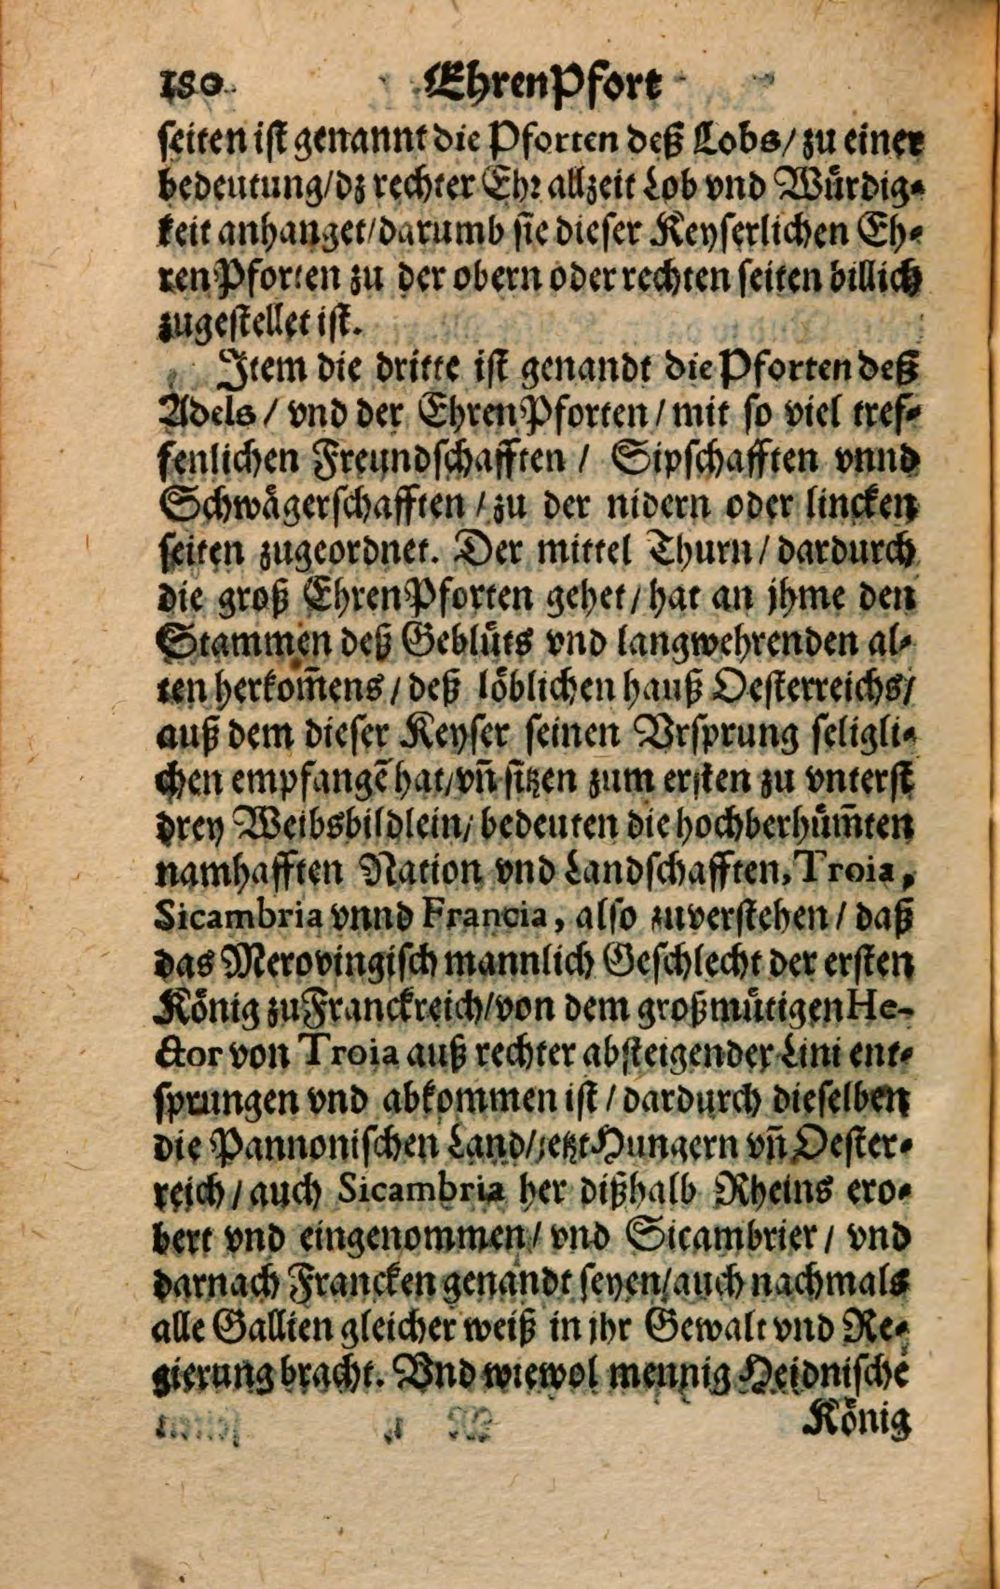 180 EhrenPfort
seiten ist genannt die Pforten deß Lobs/ zu einer
bedeutung/ dz rechter Ehr allzeit Lob vnd Würdig-
keit anhanget/ darumb sie dieser Keyserlichen Eh-
renPforten zu der obern oder rechten seiten billich
zugestellet ist.
Item die dritte ist genandt die Pforten deß
Adels/ vnd der EhrenPforten/ mit so viel tref-
fenlichen Freundschafften/ Sipschafften vnnd
Schwägerschafften/ zu der nidern oder lincken
seiten zugeordnet. Der mittel Thurn/ dardurch
die groß EhrenPforten gehet/ hat an jhme den
Stammen deß Geblüts vnd langwehrenden al-
ten herkom̃ens/ deß löblichen hauß Oesterreichs/
auß dem dieser Keyser seinen Vrsprung seligli-
chen empfangẽ hat/ vñ sitzen zum ersten zu vnterst
drey Weibsbildlein/ bedeuten die hochberhüm̃ten
namhafften Nation vnd Landschafften, Troia,
Sicambria vnnd Francia, also zuverstehen/ daß
das Merovingisch mannlich Geschlecht der ersten
König zu Franckreich/ von dem großmütigen He-
ctor von Troia auß rechter absteigender Lini ent-
sprungen vnd abkommen ist/ dardurch dieselben
die Pannonischen Land/ jetzt Hungern vñ Oester-
reich/ auch Sicambria her dißhalb Rheins ero-
bert vnd eingenommen/ vnd Sicambrier/ vnd
darnach Francken genandt seyen/ auch nachmals
alle Gallien gleicher weiß in jhr Gewalt vnd Re-
gierung bracht. Vnd wiewol mennig Heidnische
König